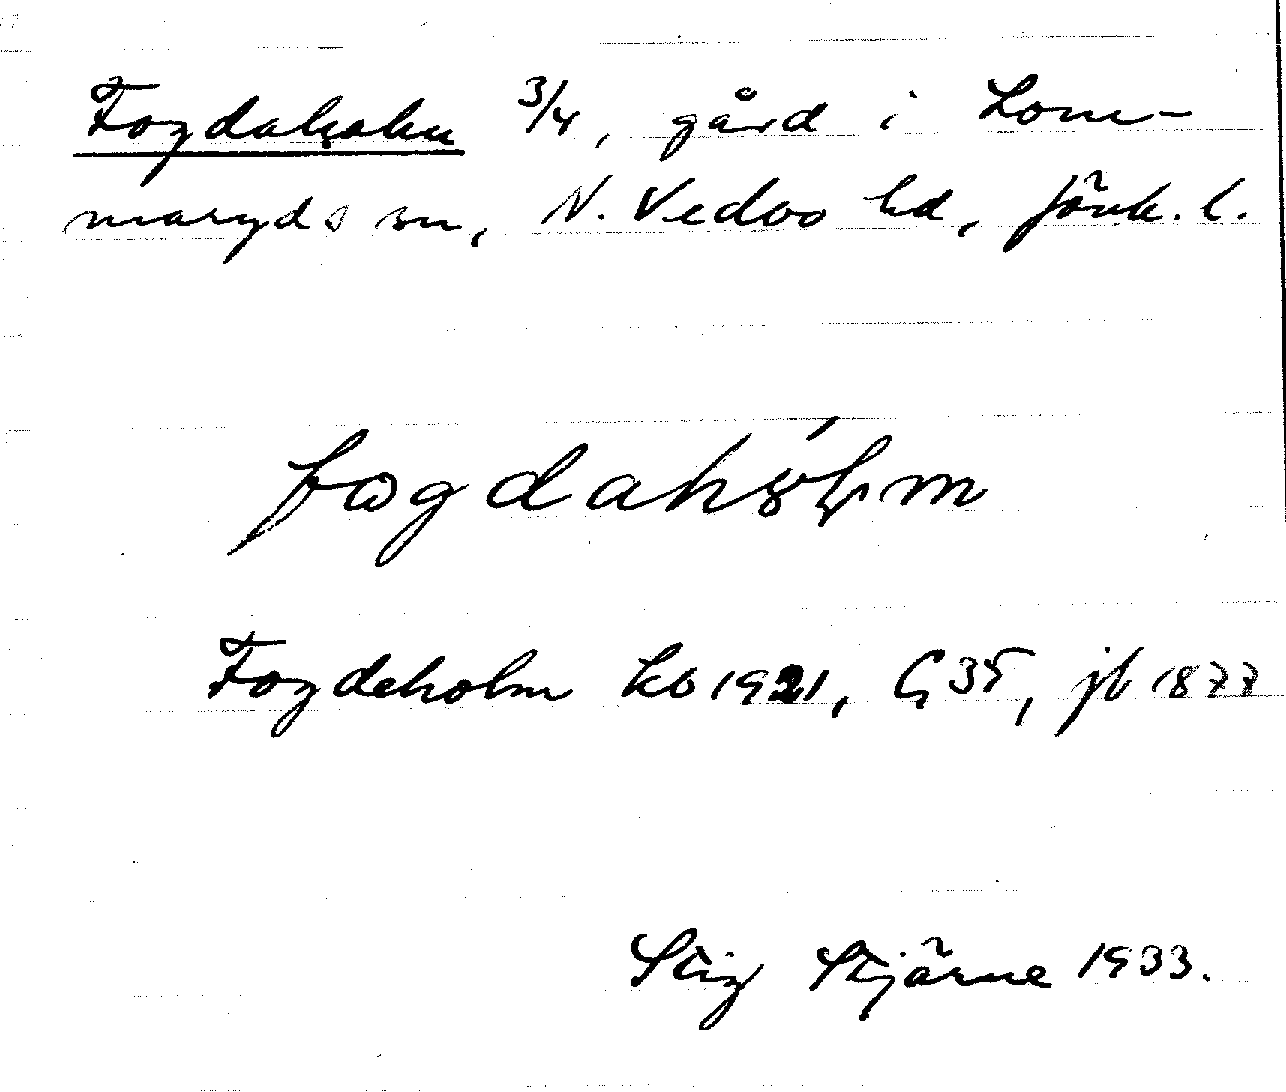 Fogdaholm 3/4, gård i Lom-
maryds sn, N. Vedbo hd, Jönk. l.
fogdahólm
Fogdeholm kb 1921, G 35, jb 1877
Stig Stjärne 1933.